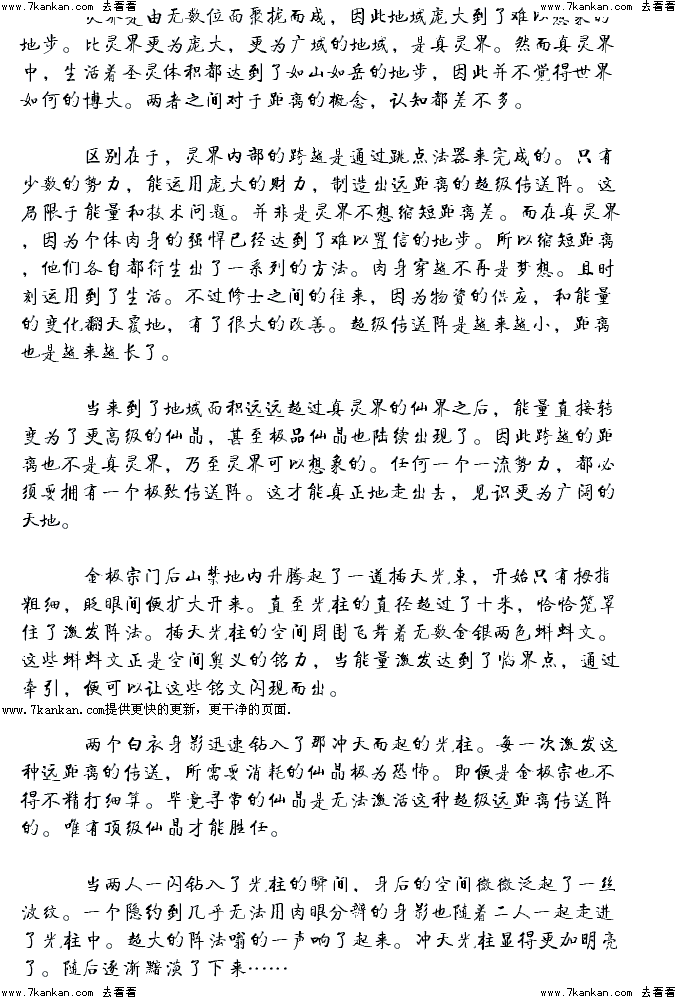 www.7kankan.com 去看看 www.7kankan.com 去看看
灵界是由无数位面聚拢而成，因此地域庞大到了难以想象的
地步。比灵界更为庞大，更为广域的地域，是真灵界。然而真灵界
中，生活着圣灵体积都达到了如山如岳的地步，因此并不觉得世界
如何的博大。两者之间对于距离的概念，认知都差不多。
区别在于，灵界内部的跨越是通过跳点法器来完成的。只有
少数的势力，能运用庞大的财力，制造出远距离的超级传送阵。这
局限于能量和技术问题。并非是灵界不想缩短距离差。而在真灵界
，因为个体肉身的强悍已经达到了难以置信的地步。所以缩短距离
，他们各自都衍生出了一系列的方法。肉身穿越不再是梦想。且时
刻运用到了生活。不过修士之间的往来，因为物资的供应，和能量
的变化翻天覆地，有了很大的改善。超级传送阵是越来越小，距离
也是越来越长了。
当来到了地域面积远远超过真灵界的仙界之后，能量直接转
变为了更高级的仙晶，甚至极品仙晶也陆续出现了。因此跨越的距
离也不是真灵界，乃至灵界可以想象的。任何一个一流势力，都必
须要拥有一个极致传送阵。这才能真正地走出去，见识更为广阔的
天地。
金极宗门后山禁地内升腾起了一道插天光束，开始只有拇指
粗细，眨眼间便扩大开来。直至光柱的直径超过了十米，恰恰笼罩
住了激发阵法。插天光柱的空间周围飞舞着无数金银两色蝌蚪文。
这些蝌蚪文正是空间奥义的铭力，当能量激发达到了临界点，通过
牵引，便可以让这些铭文闪现而出。
www.7kankan.com提供更快的更新，更干净的页面.
两个白衣身影迅速钻入了那冲天而起的光柱。每一次激发这
种远距离的传送，所需要消耗的仙晶极为恐怖。即便是金极宗也不
得不精打细算。毕竟寻常的仙晶是无法激活这种超级远距离传送阵
的。唯有顶级仙晶才能胜任。
当两人一闪钻入了光柱的瞬间，身后的空间微微泛起了一丝
波纹。一个隐约到几乎无法用肉眼分辨的身影也随着二人一起走进
了光柱中。超大的阵法嗡的一声响了起来。冲天光柱显得更加明亮
了。随后逐渐黯淡了下来……
www.7kankan.com 去看看 www.7kankan.com 去看看